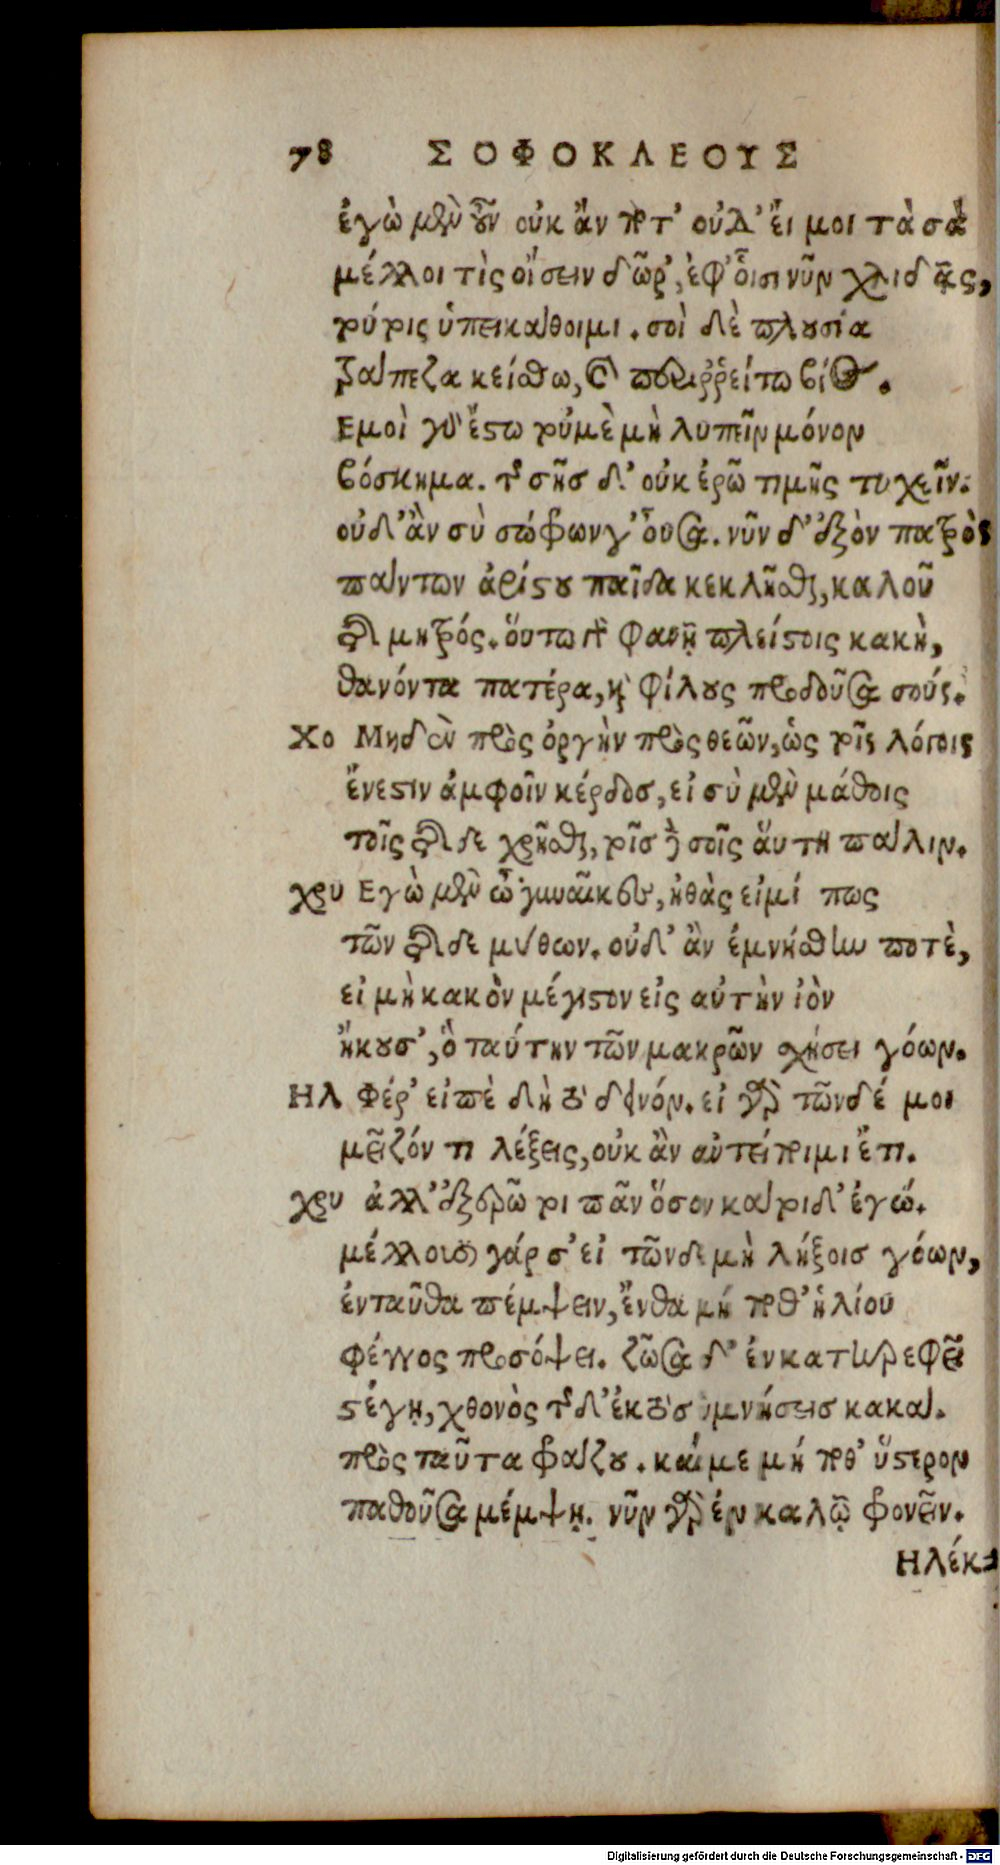 78 ΣΟΦΟΚΛΕΟΥΣ
ἐγὼ μὲν οὖν οὐκ ἄν ποτ' οὐδ' εἴ μοι τὰ σὰ
μέλλοι τὶς οἴσειν δῶρ', ἐφ' οἷσι νῦν χλιδᾷς,
τούτοις ὑπεικάθοιμι. σοὶ δὲ πλουσία
τράπεζα κείσθω, καὶ περιῤῥείτω βίος.
Εμοὶ γὰρ ἔστω τοὐμὲ μὴ λυπεῖν μόνον
βόσκημα. τῆς σῆσ δ' οὐκ ἐρῶ τιμῆς τυχεῖν.
οὐδ' ἂν σὺ σώφρων γ' οὖσα. νῦν δ' ἐξὸν πατρὸς
πάντων ἀρίστου παῖδα κεκλῆσθαι, καλοῦ
τῆς μητρός. οὕτω γὰρ φανῇ πλείστοις κακὴ,
θανόντα πατέρα, καὶ φίλους προδοῦσα σούς.
Χο Μηδὲν πρὸς ὀργὴν πρὸς θεῶν, ὡς τοῖς λόγοις
ἔνεστιν ἀμφοῖν κέρδοσ, εἰ σὺ μὲν μάθοις
τοῖς τῆσδε χρῆσθαι, τοῖσ δὲ σοῖς αὕτη πάλιν.
χρυ Εγὼ μὲν ὦ γυναῖκες, ἠθάς εἰμί πως
τῶν τῆσδε μύθων. οὐδ' ἂν ἐμνήσθην ποτὲ,
εἰ μὴ κακὸν μέγιστον εἰς αὐτὴν ἰὸν
ἤκουσ', ὃ ταύτην τῶν μακρῶν σχήσει γόων.
Ηλ Φέρ' εἰπὲ δὴ τὸ δεινόν. εἰ γὰρ τῶνδέ μοι
μεῖζόν τι λέξεις, οὐκ ἂν ἀντείποιμι ἔτι.
χρυ ἀλλ' ἐξερῶ τοι πᾶν ὅσον κάτοιδ' ἐγώ.
μέλλουσι γάρ σ' εἰ τῶνδε μὴ λήξοισ γόων,
ἐνταῦθα πέμψειν, ἔνθα μή ποθ' ἡλίου
φέγγος προσόψει. ζῶσα δ' ἐν κατηρεφεῖ
στέγῃ, χθονὸς τῆσδ' ἐκτὸσ ὑμνήσεισ κακά.
πρὸς ταῦτα φράζου. καί με μή ποθ' ὕστερον
παθοῦσα μέμψῃ. νῦν γὰρ ἐν καλῷ φρονεῖν.
Ηλέκ-
Digitalisierung gefördert durch die Deutsche Forschungsgemeinschaft - DFG